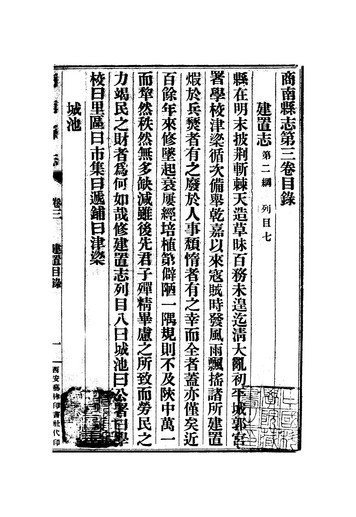 商南縣志第三卷目錄
建置志 第二綱 列目七
縣在明末披荆斬棘天造草昧百務未遑迄清大亂初平城郭官
署學校津梁循次備舉乾嘉以來寇賊時發風雨飄搖諸所建置
煅於兵燹者有之廢於人事頹惰者有之幸而全者蓋亦僅矣近
百餘年來修墜起衰屢經培植第僻陋一隅規則不及陜中萬一
而犂然秩然無多缺減雖後先君子殫精畢慮之所致而勞民之
力竭民之財者為何如哉修建置志列目八曰城池曰公署曰學
校曰里區曰市集曰遞鋪曰津梁
城池
卷三 建置目錄
一
西安藝術印書社代印